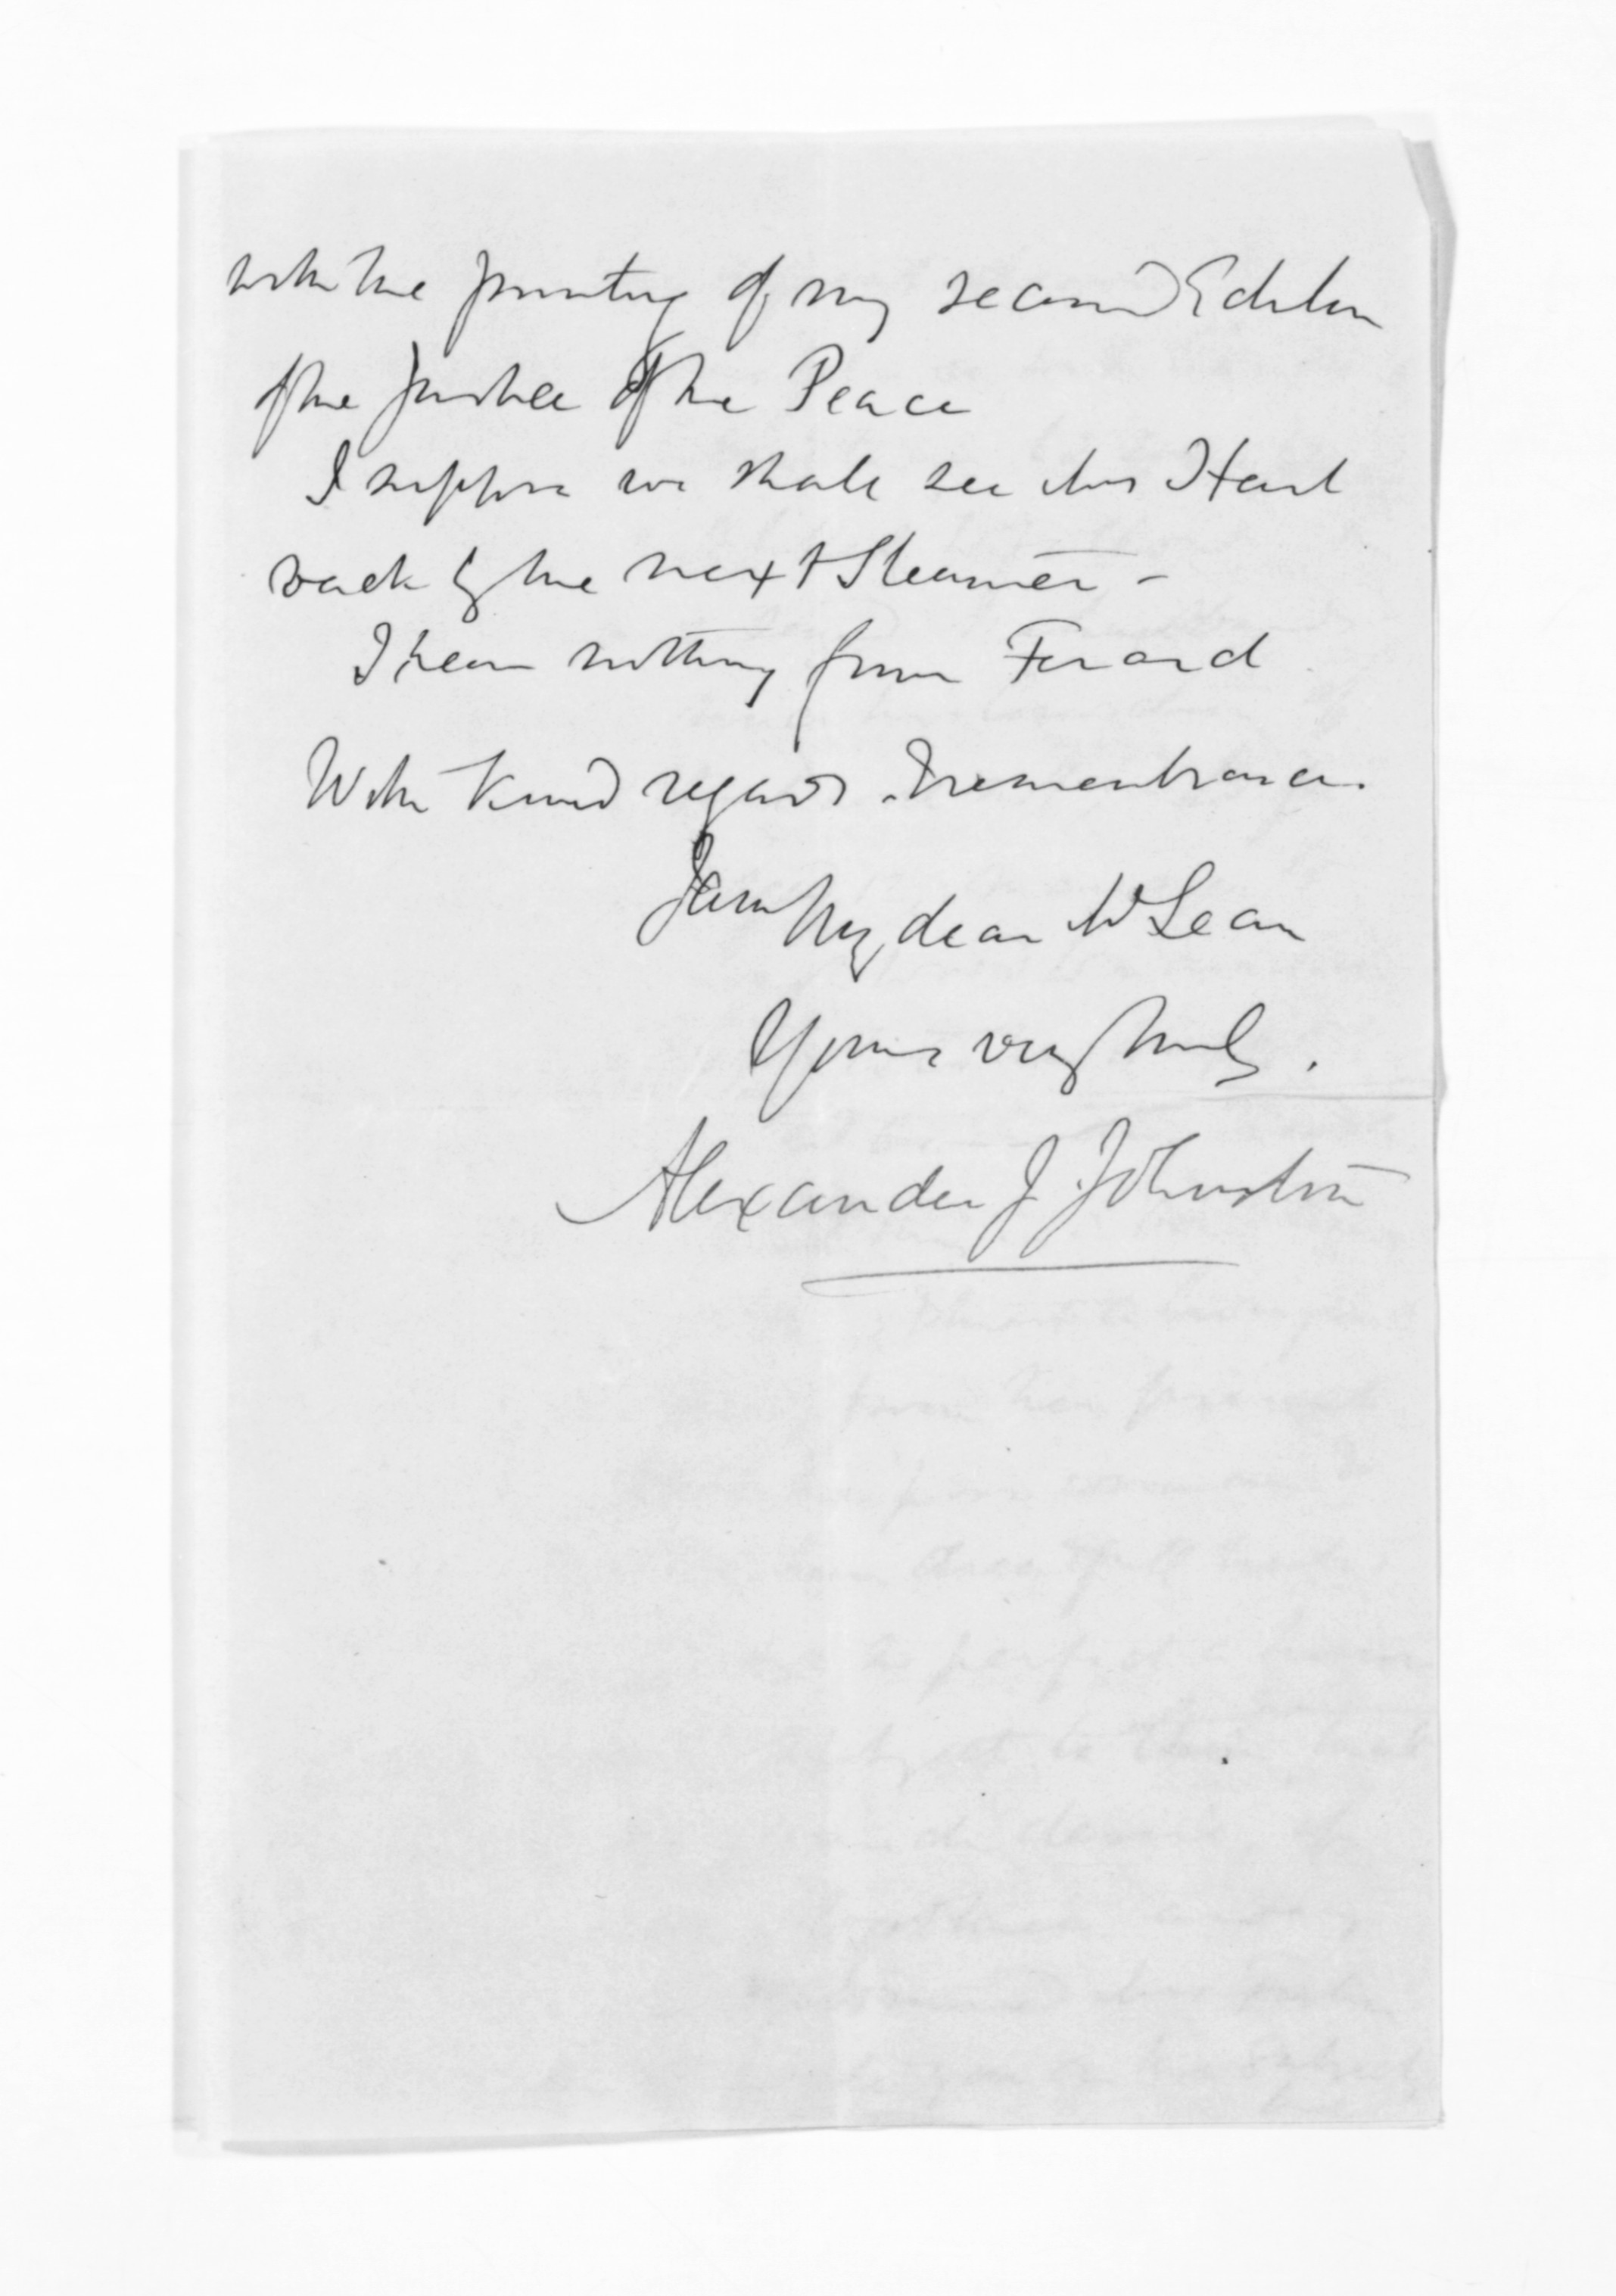 with the printing of my second Edition
of the Justice of the Peace
I suppose we shall see Mrs Hart
back by the next Steamer -
I hear nothing from Fenard
With kind regards & remembrances.
I am My dear McLean
Yours very truly.
Alexander J. Johnston